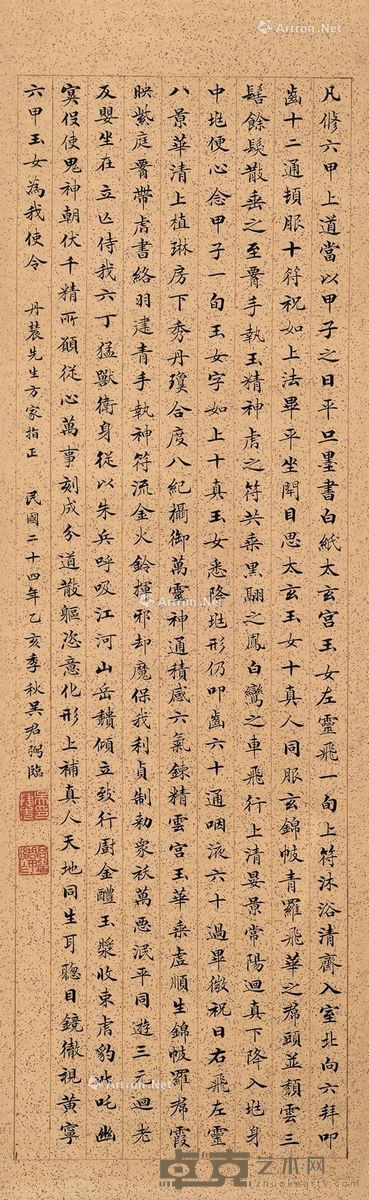 凡修六甲上道當以甲子之日平旦墨書白紙太玄宮玉女左靈飛一旬上符沐浴清齋入室北向六拜叩
齒十二通頓服十符祝如上法畢平坐閉目思太玄玉女十真人同服玄錦帔青羅飛華之帬頭並頹雲三
髻餘髮散垂之至胷手執玉精神虎之符共乘黑翮之鳳白鸞之車飛行上清晏景常陽迴真下降入兆身
中兆便心念甲子一旬玉女字如上十真玉女悉降兆形仍叩齒六十通咽液六十過畢微祝曰右飛左靈
八景華清上植琳房下秀丹瓊合度八紀攝御萬靈神通積感六氣鍊精雲宮玉華乘虛順生錦帔羅帬霞
映紫庭胷帶虎書絡羽建青手執神符流金火鈴揮邪却魔保我利貞制勑衆祅萬惡泯平同遊三元迴老
反嬰坐在立亡侍我六丁猛獸衛身從以朱兵呼吸江河山岳頹傾立致行廚金醴玉漿收束虎豹叱吒幽
冥役使鬼神朝伏千精所願從心萬事刻成分道散軀恣意化形上補真人天地同生耳聰目鏡徹視黃寧
六甲玉女為我使令 丹林先生方家指正 民國二十四年乙亥季秋吳君弼臨
Artron.Net
Artron.Net
Artron.Net
Artron.Net
卓克艺术网
www.zhuokearts.com